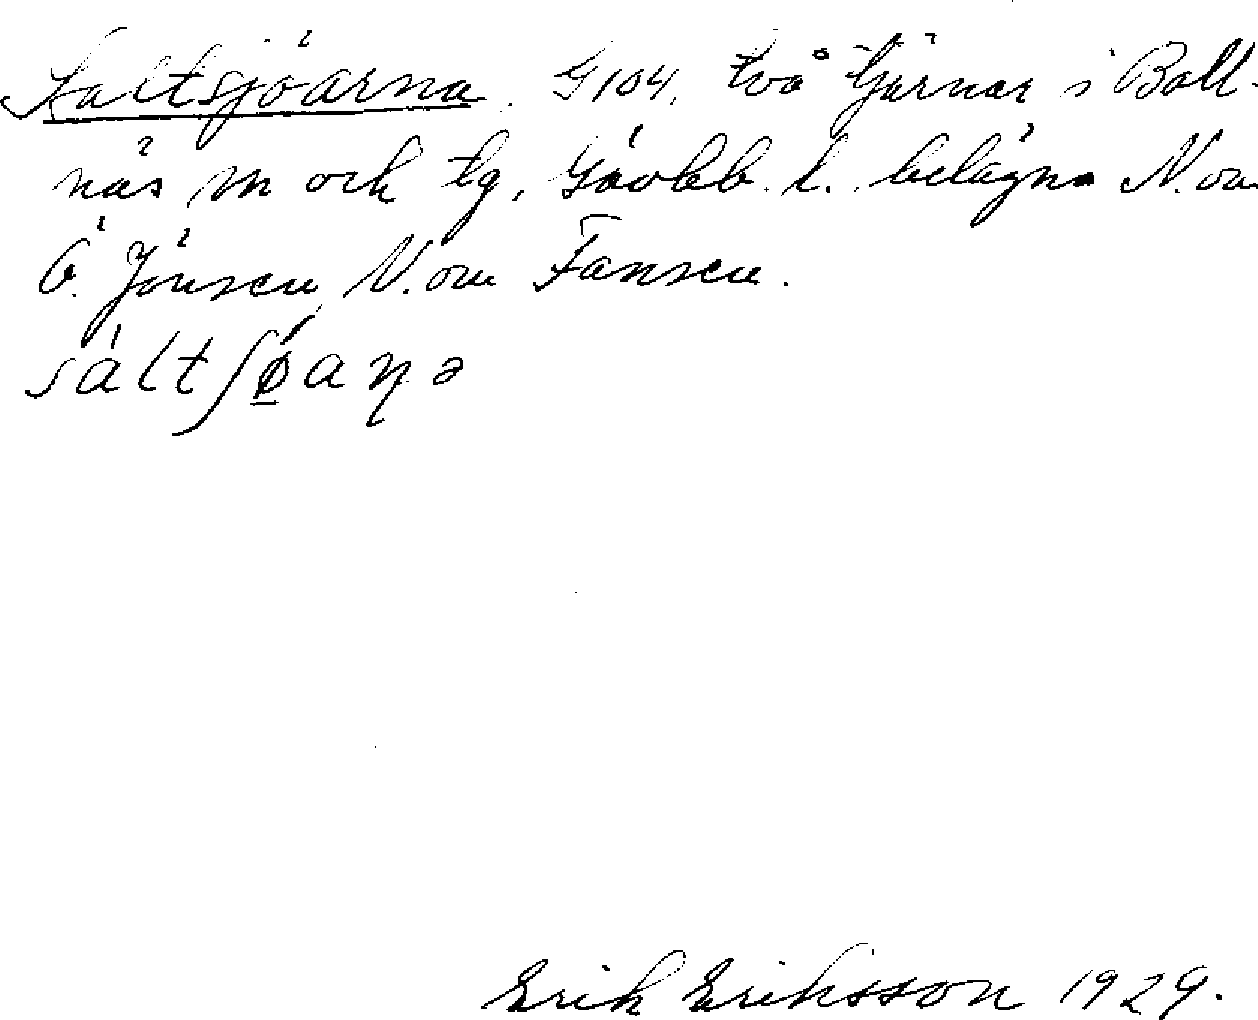 Saltsjöarna. G104, två tjärnar i Boll-
näs sn och tg, Gävleb. l. belägna N. om
Ö. Jönsen, N. om Fänsen.
sáltʃø̱aṇə
Erik Eriksson 1929.